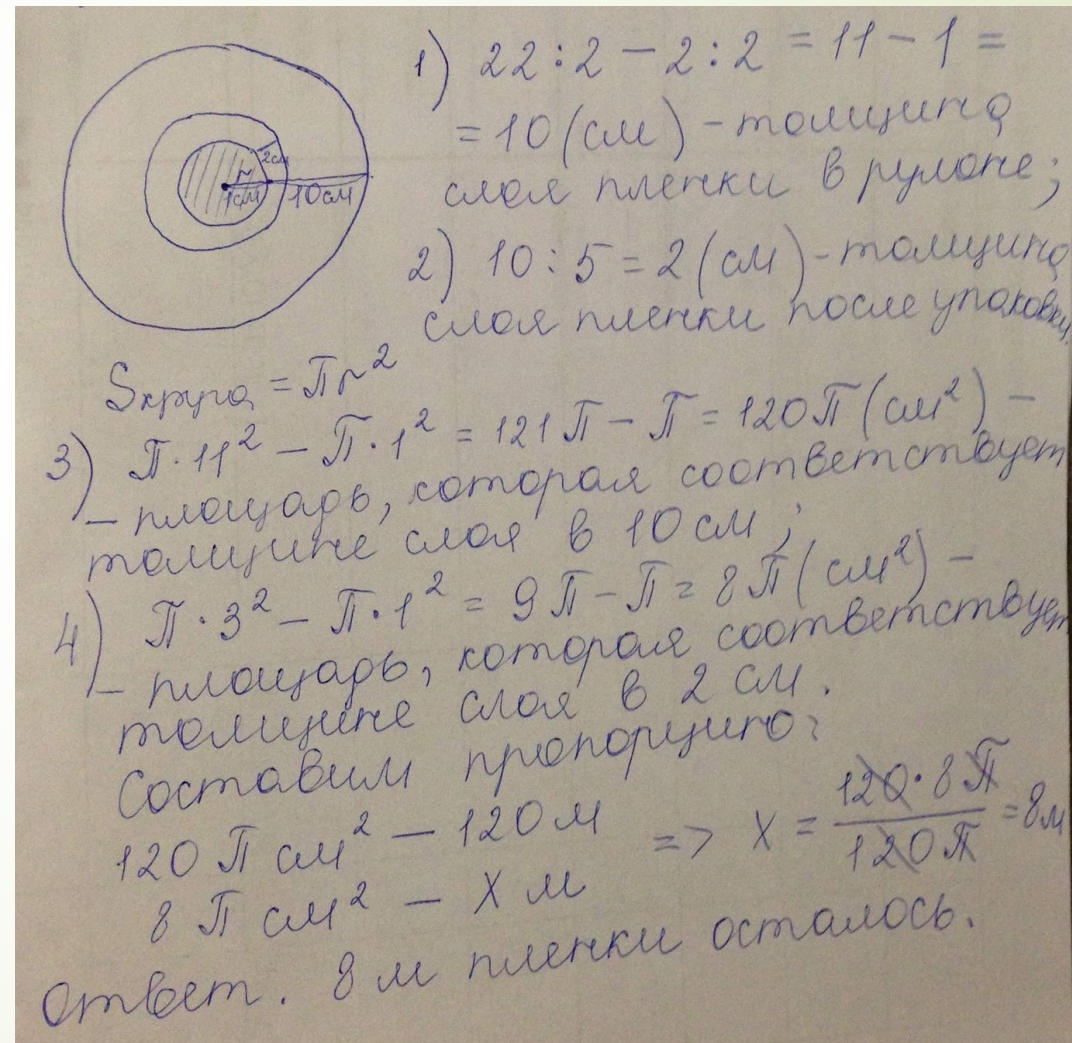 1) 22 : 2 – 2 : 2 = 11 – 1 =
= 10 (см) – толщина
слоя пленки в рулоне;
2см
r
1см 10см
2) 10 : 5 = 2 (см) – толщина
слоя пленки после упаковки.
Sкруга = Пr²
3) П·11² – П·1² = 121П – П = 120П (см²) –
– площадь, которая соответствует
толщине слоя в 10 см;
4) П·3² – П·1² = 9П – П = 8П (см²) –
– площадь, которая соответствует
толщине слоя в 2 см.
Составим пропорцию:
120 П см² – 120 м
8 П см² – X м
=> X = 120·8П / 120П = 8м
Ответ. 8 м пленки осталось.